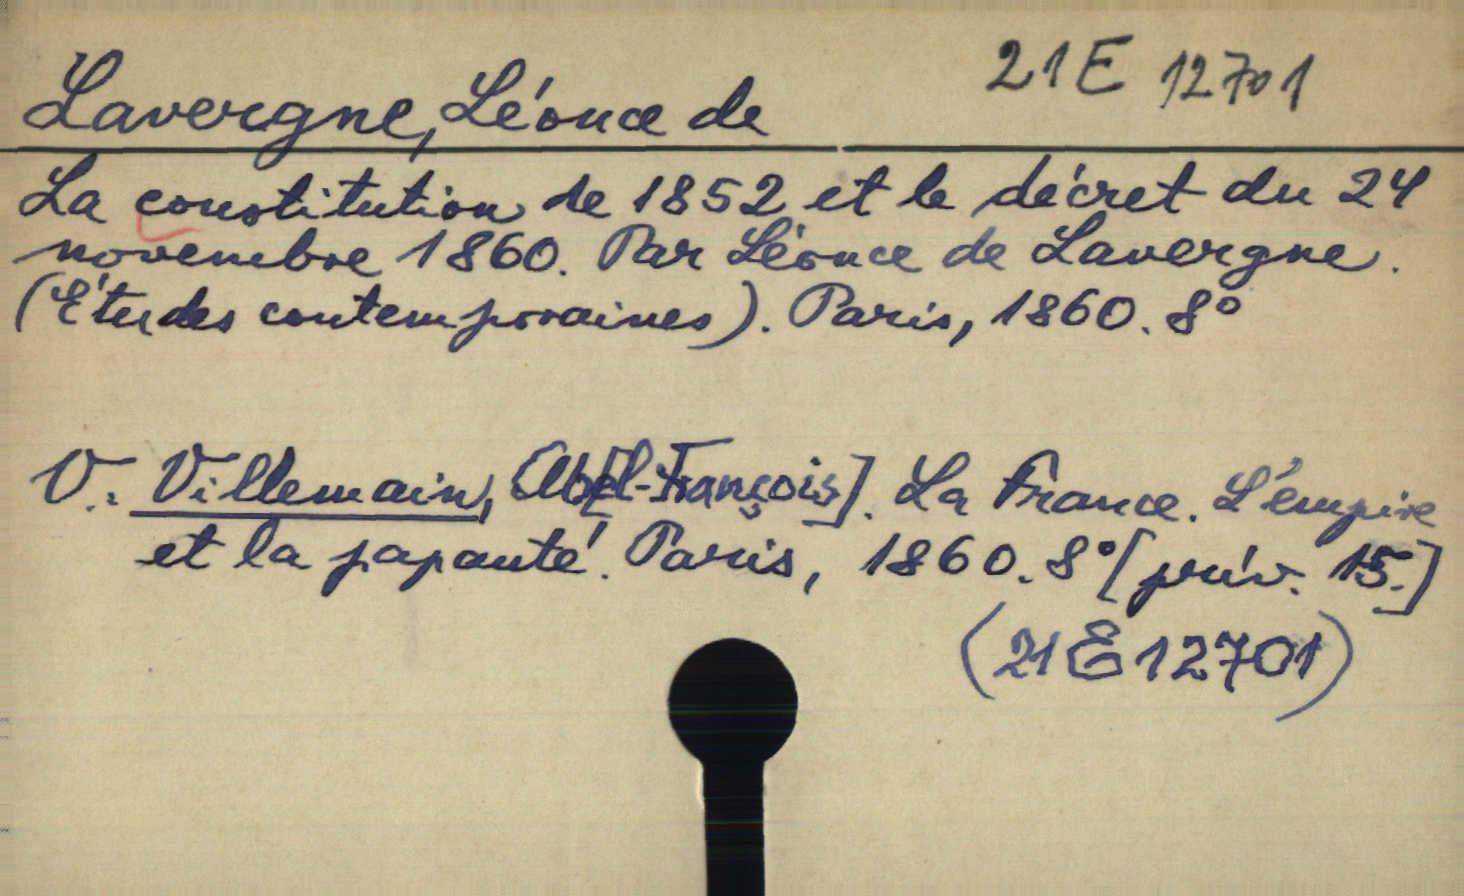 21E 12701
Lavergne, Léonce de
La constitution de 1852 et le décret du 24
novembre 1860. Par Léonce de Lavergne.
(Études contemporaines). Paris, 1860. 8°
V.: Villemain, Ab[el-François]. La France. L'empire
et la papauté. Paris, 1860. 8° [přív. 15.]
(21E12701)